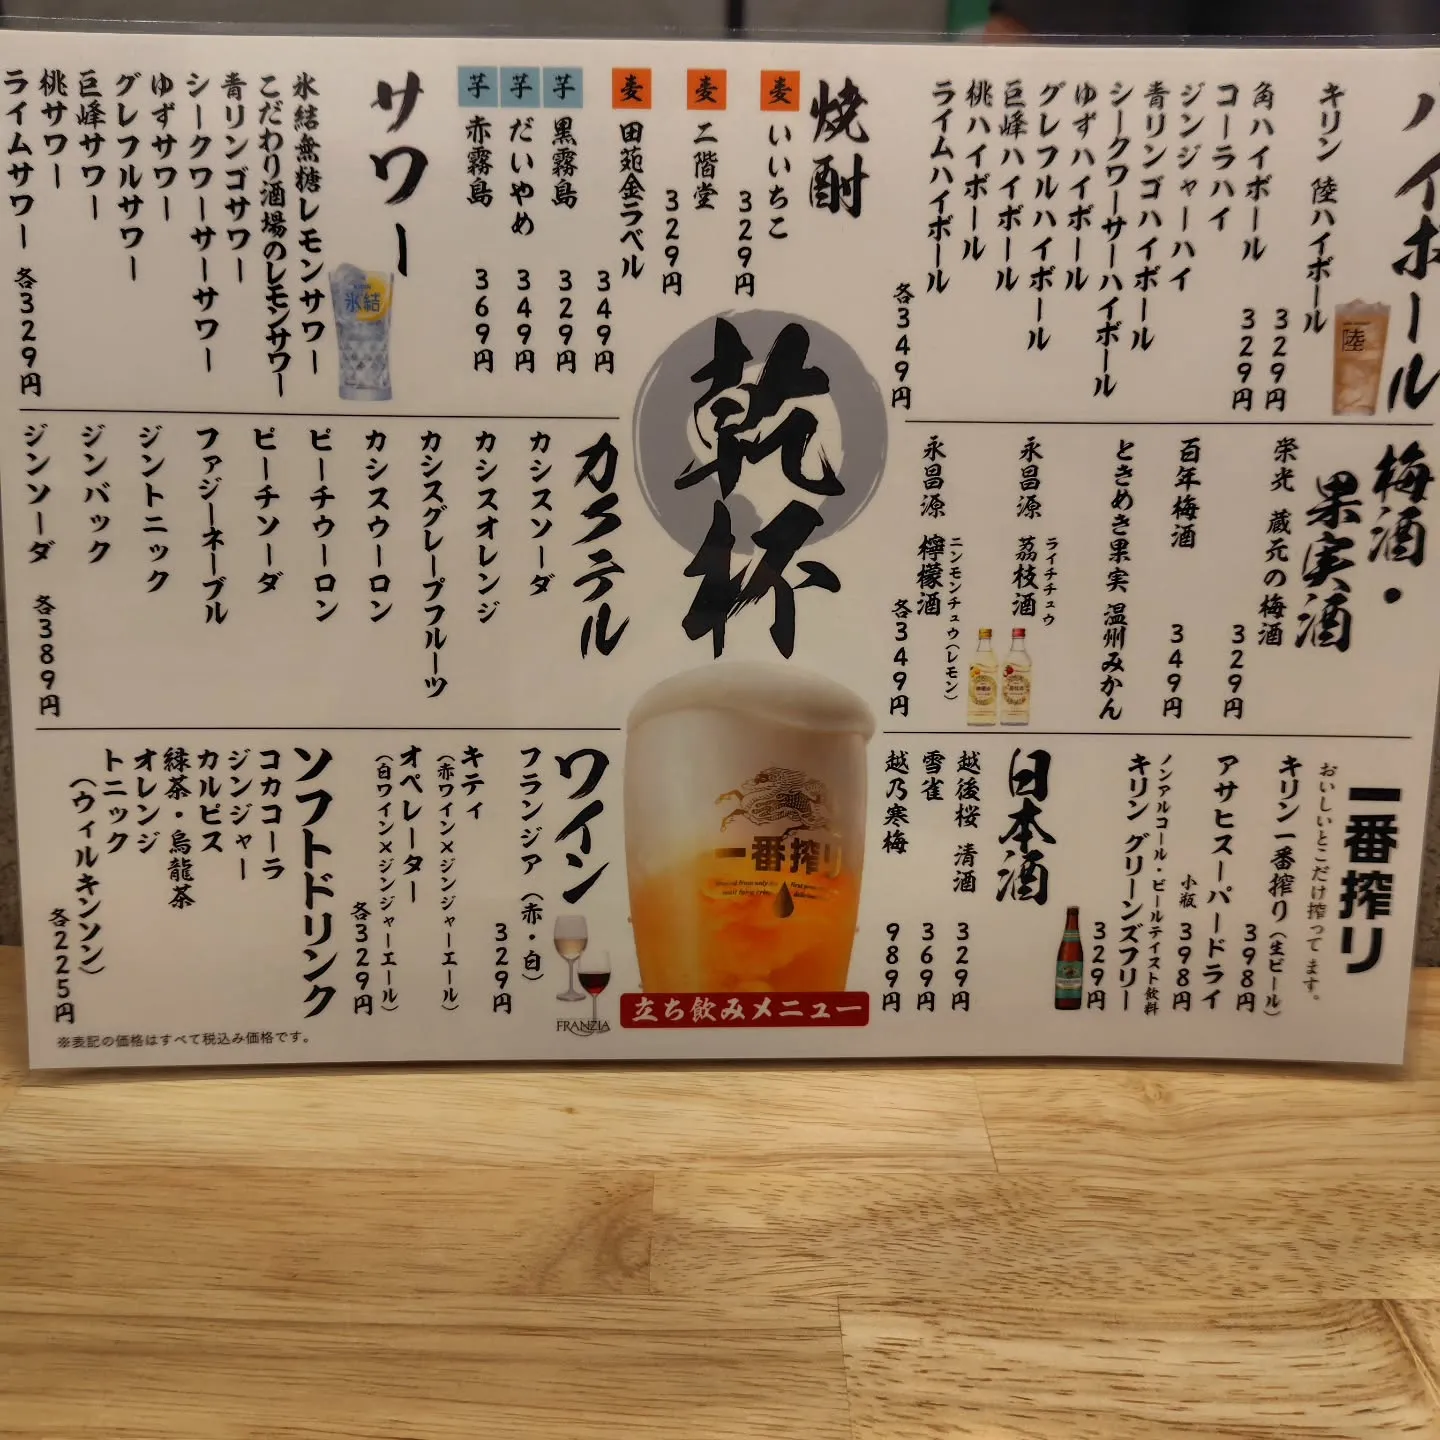 ハイボール
キリン 陸ハイボール
329円
角ハイボール
329円
コーラハイ
ジンジャーハイ
青リンゴハイボール
シークワーサーハイボール
ゆずハイボール
グレフルハイボール
巨峰ハイボール
桃ハイボール
ライムハイボール
各349円
陸
焼酎
麦 いいちこ
329円
麦 二階堂
329円
麦 田苑金ラベル
349円
芋 黒霧島
329円
芋 だいやめ
349円
芋 赤霧島
369円
サワー
氷結無糖レモンサワー
こだわり酒場のレモンサワー
青リンゴサワー
シークワーサーサワー
ゆずサワー
グレフルサワー
巨峰サワー
桃サワー
ライムサワー
各329円
氷結
乾杯
梅酒・
果実酒
栄光 蔵元の梅酒
329円
百年梅酒
349円
ときめき果実 温州みかん
永昌源 茘枝酒
ライチチュウ
永昌源 檸檬酒
ニンモンチュウ(レモン)
各349円
カクテル
カシスソーダ
カシスオレンジ
カシスグレープフルーツ
カシスウーロン
ピーチウーロン
ピーチソーダ
ファジーネーブル
ジントニック
ジンバック
ジンソーダ
各389円
一番搾り
おいしいとこだけ搾ってます。
キリン一番搾り(生ビール)
398円
アサヒスーパードライ
小瓶 398円
ノンアルコール・ビールテイスト飲料
キリン グリーンズフリー
329円
日本酒
越後桜 清酒
329円
雪雀
369円
越乃寒梅
989円
一番搾り
立ち飲みメニュー
ワイン
フランジア(赤・白)
329円
キティ
(赤ワイン×ジンジャーエール)
オペレーター
(白ワイン×ジンジャーエール)
各329円
FRANZIA
ソフトドリンク
コカコーラ
ジンジャー
カルピス
緑茶・烏龍茶
オレンジ
トニック
(ウィルキンソン)
各225円
※表記の価格はすべて税込み価格です。